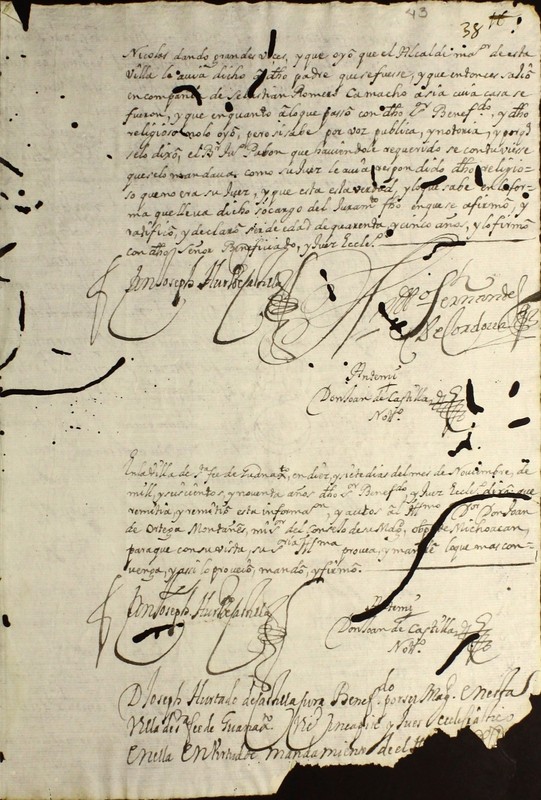 43
38
Nicolas dando grandes voces, y que oyó que el Alcalde maᵒʳ de esta
villa le avia dicho a dho padre que se fuesse, y que entonces salió
en compañia de Sebastian Romero Camacho a cuia casa se
fueron, y que en quanto a lo que passó con dho Sʳ Benefᵈᵒ, y dho
religioso no lo oyó, pero si sabe por voz publica, y notoria, y porq̃
se lo dixo, el Bʳ Juᵒ Pabon que haviendole requerido se contuviesse
que se lo mandava como su Juez le avia respondido dho religio-
so que no era su Juez, y que esta es la verdad, y lo que sabe en la for-
ma que lleva dicho so cargo del Juramᵗᵒ fho en que se afirmó, y
ratificó, y declaró ser de edad de quarenta, y cinco años, y lo firmó
con dho Señor Beneficiado, y Juez Eccleᶜᵒ
Joseph Hurtᵈᵒ de
Fernandez
de Cordova
Antemi
Don Joan de Castilla
Nottᵒ
En la Villa de Sᵗᵃ Fee de Guanaxᵗᵒ, en diez, y siete dias del mes de Noviembre, de
mill, y seiscientos, y noventa años dho Sʳ Benefᵈᵒ, y Juez Ecclᶜᵒ dixo que
remitia, y remitió esta informasᵒⁿ, y autos al Illmo Sᵒʳ Don Joan
de Ortega Montañes, mi Sʳ del Consejo de su Magᵈ, obpo de Michoacan,
para que con su vista, su Sʳⁱᵃ Illma provea, y mande lo que mas con-
venga, y assi lo proveió, mandó, y firmó.
Joseph Hurtᵈᵒ de
Antemi
Don Joan de Castilla
Nottᵒ
D Joseph Hurtado de cura Benefᵈᵒ por su Magᵈ en esta
Villa de Sᵗᵃ Fee de Guanaxᵗᵒ Vicᵒ in capite y Juez ecclesiastico
en ella en virtud de mandamiento de el